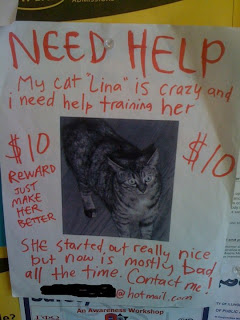 ADMISSIONS
NEED HELP
My cat "Lina" is crazy and
i need help training her
$10
REWARD
JUST
MAKE
HER
BETTER
$10
SHE started out really nice
but now is mostly bad
all the time. Contact me!
@hotmail.com
An Awareness Workshop